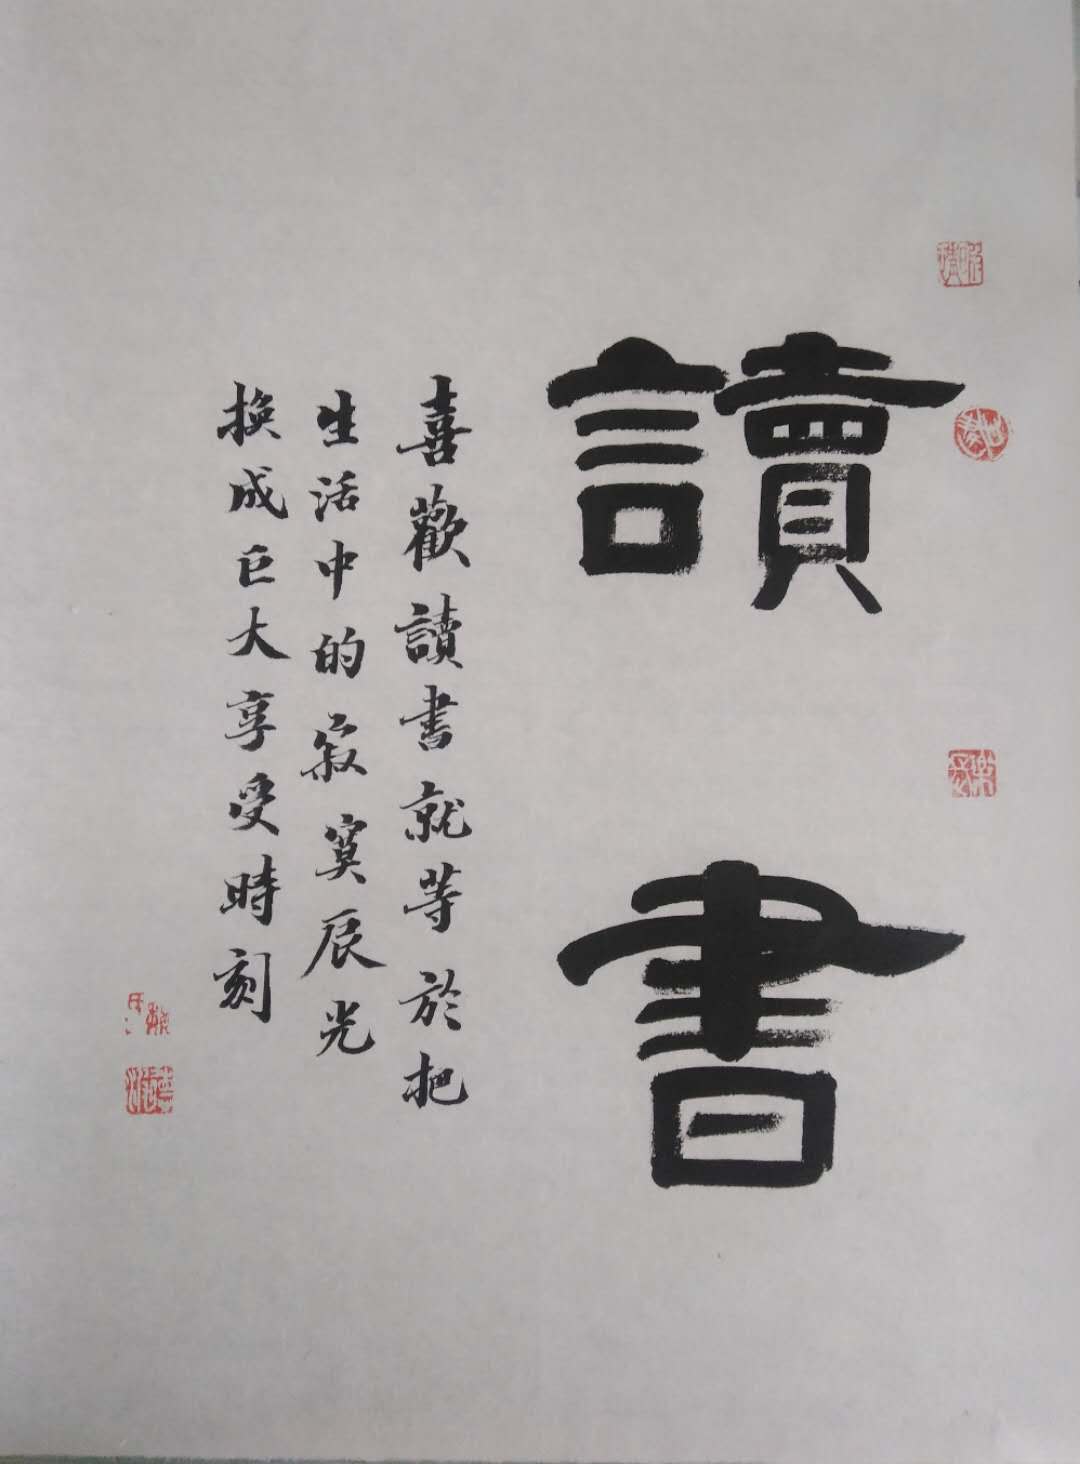 讀書
喜歡讀書就等於把
生活中的寂寞辰光
換成巨大享受時刻